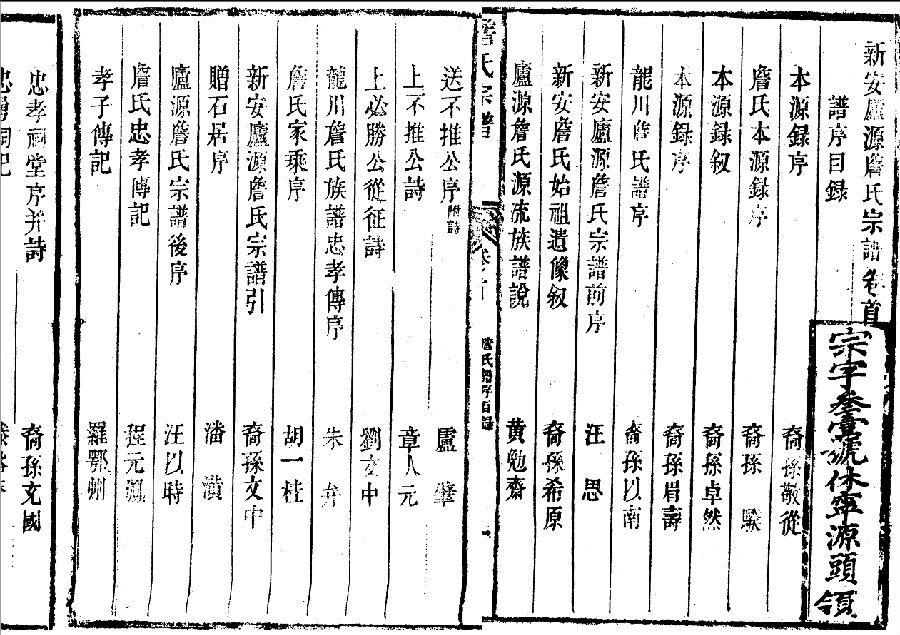 新安廬源詹氏宗譜卷首
譜序目錄
本源録序 裔孫敬從
詹氏本源録序 裔孫 騤
本源録叙 裔孫卓然
本源録序 裔孫眉壽
龍川詹氏譜序 裔孫以南
新安廬源詹氏宗譜前序 汪 思
新安詹氏始祖遺像叙 裔孫希原
廬源詹氏源流族譜說 黄勉齋
宗字叁壹號休寧源頭領
詹氏宗譜
卷首
詹氏譜序目錄
一
送不推公序附詩 盧肇
上不推公詩 章人元
上必勝公從征詩 劉文中
龍川詹氏族譜忠孝傳序 朱弁
詹氏家乘序 胡一桂
新安廬源詹氏宗譜引 裔孫文中
贈石居序 潘潢
廬源詹氏宗譜後序 汪以時
詹氏忠孝傳記 程元鳳
孝子傳記 羅鄂州
忠孝祠堂序并詩 裔孫克國
忠勇祠記